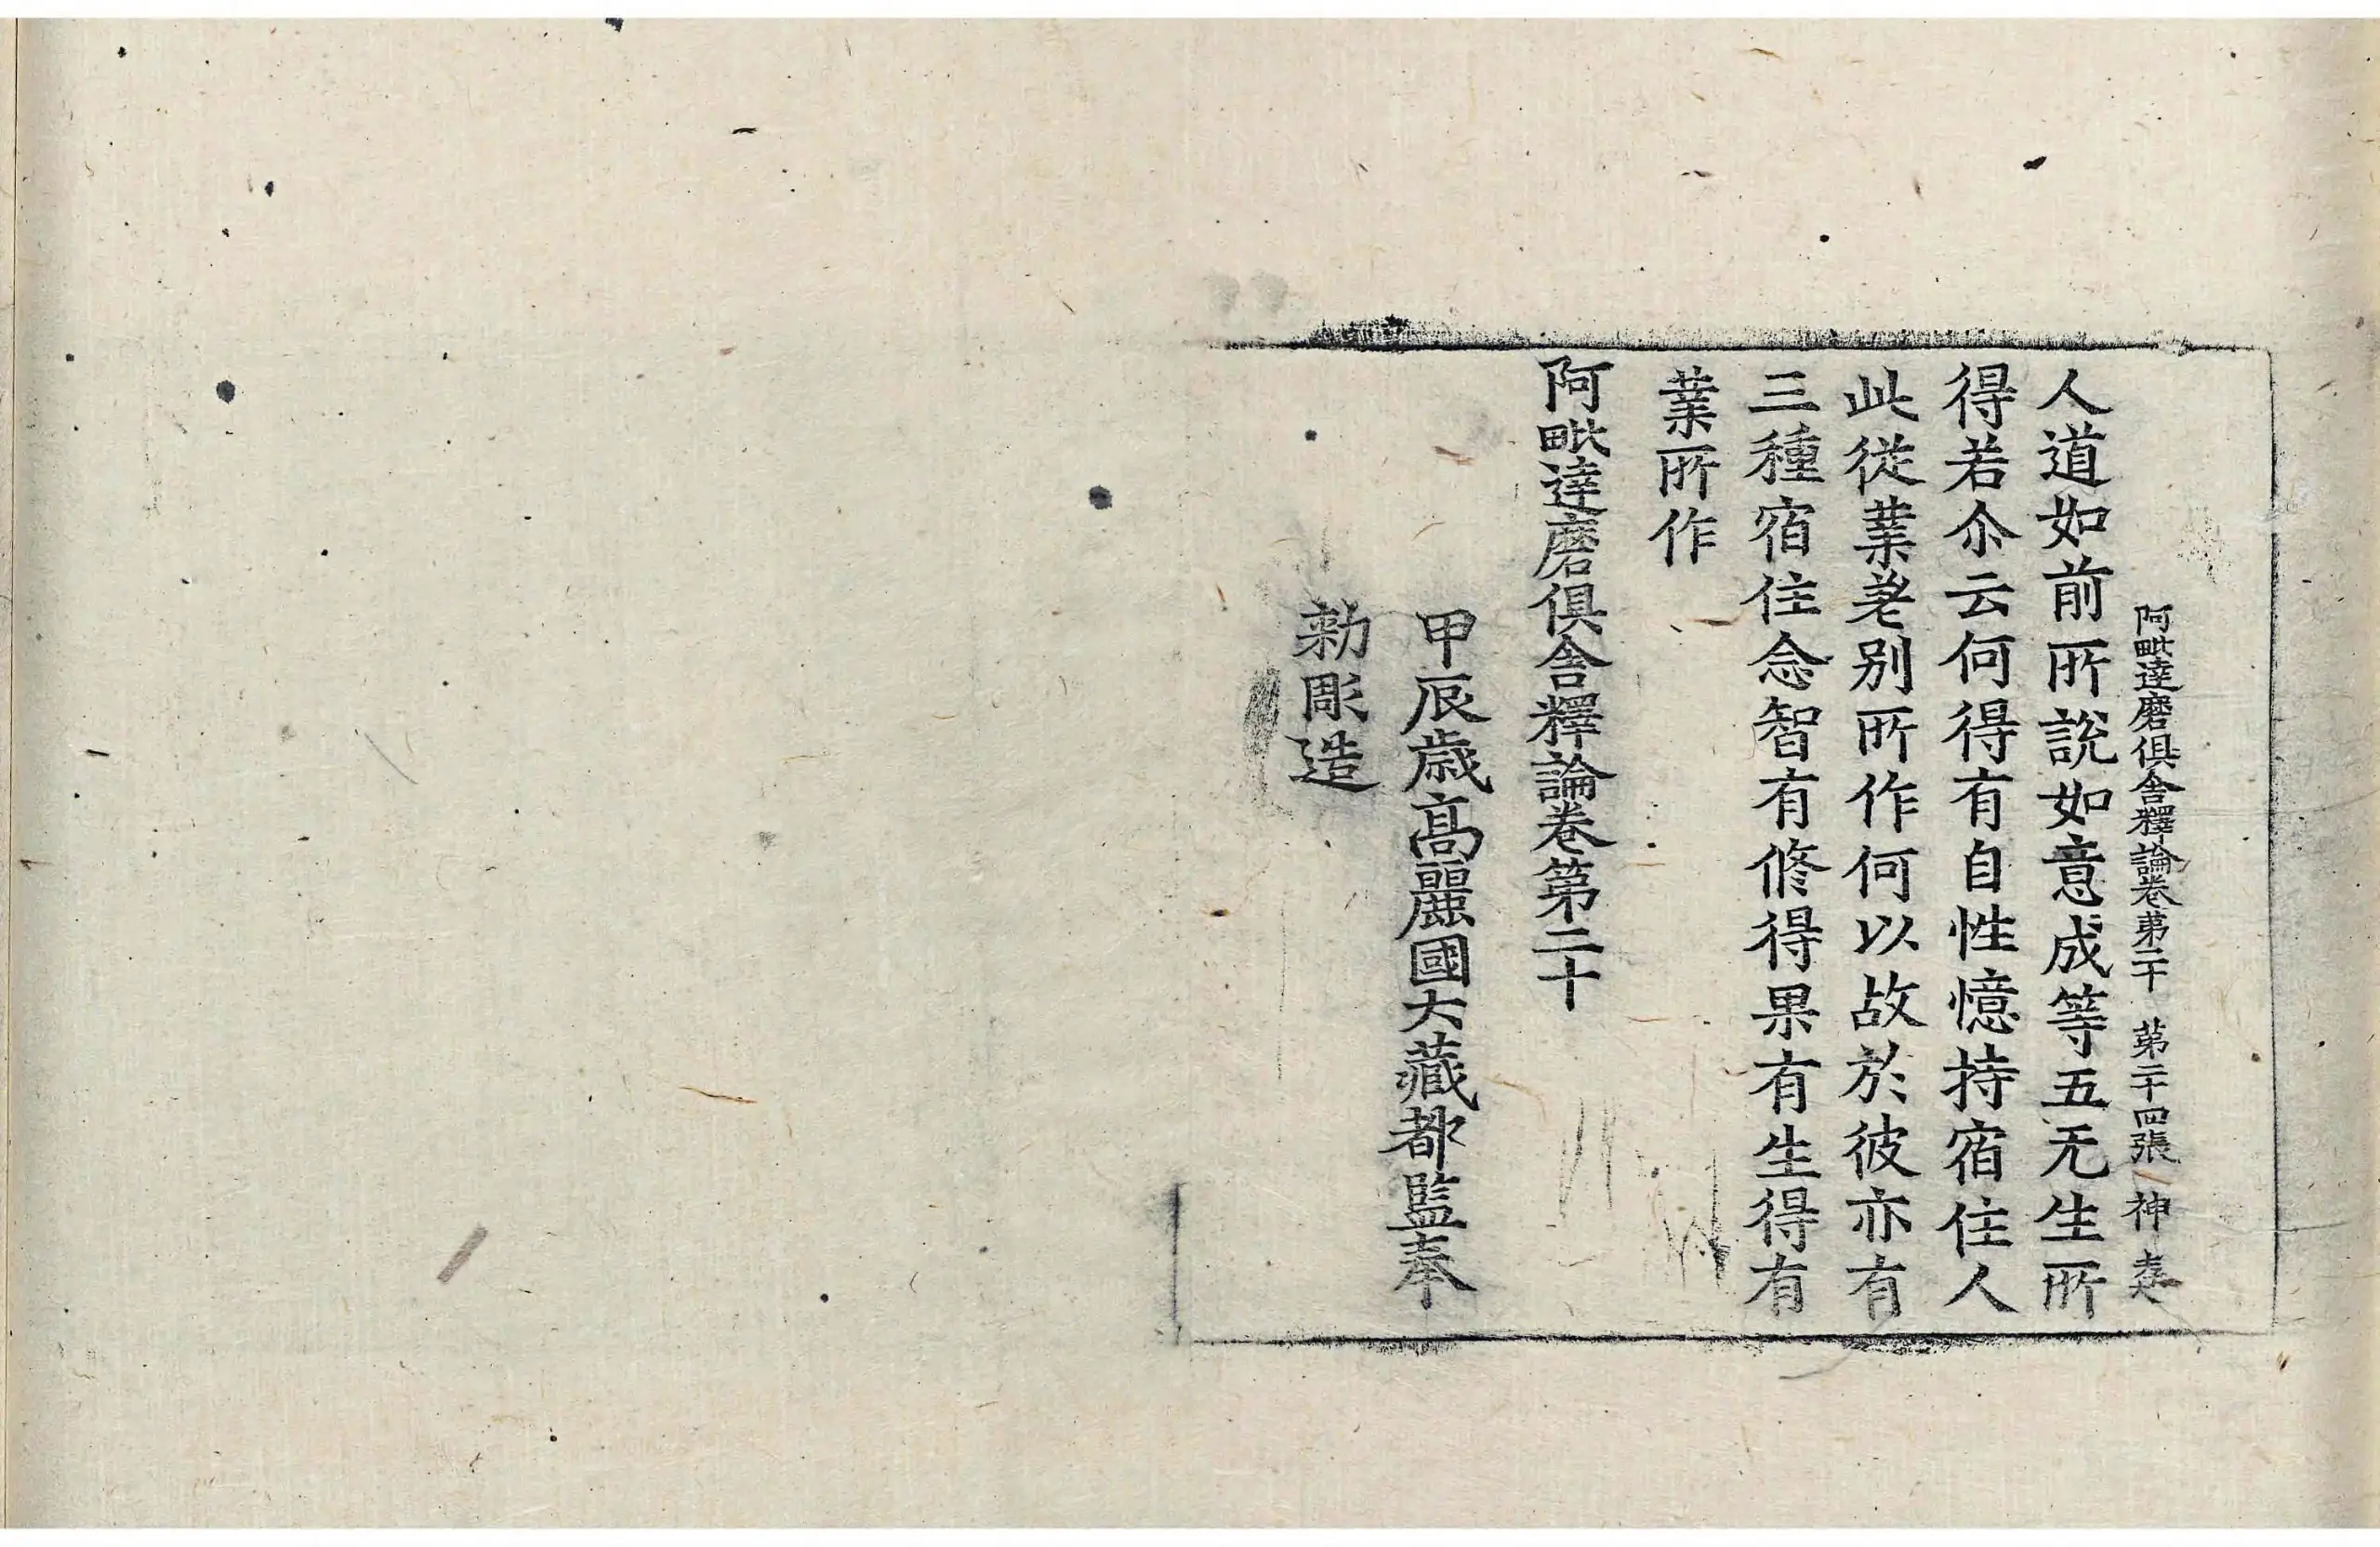 阿毗達磨俱舍釋論卷第二十 第二十四張 神
人道如前所說如意成等五无生所
得若尒云何得有自性憶持宿住人
此從業差別所作何以故於彼亦有
三種宿住念智有修得果有生得有
業所作
阿毗達磨俱舍釋論卷第二十
甲辰歲高麗國大藏都監奉
勅彫造